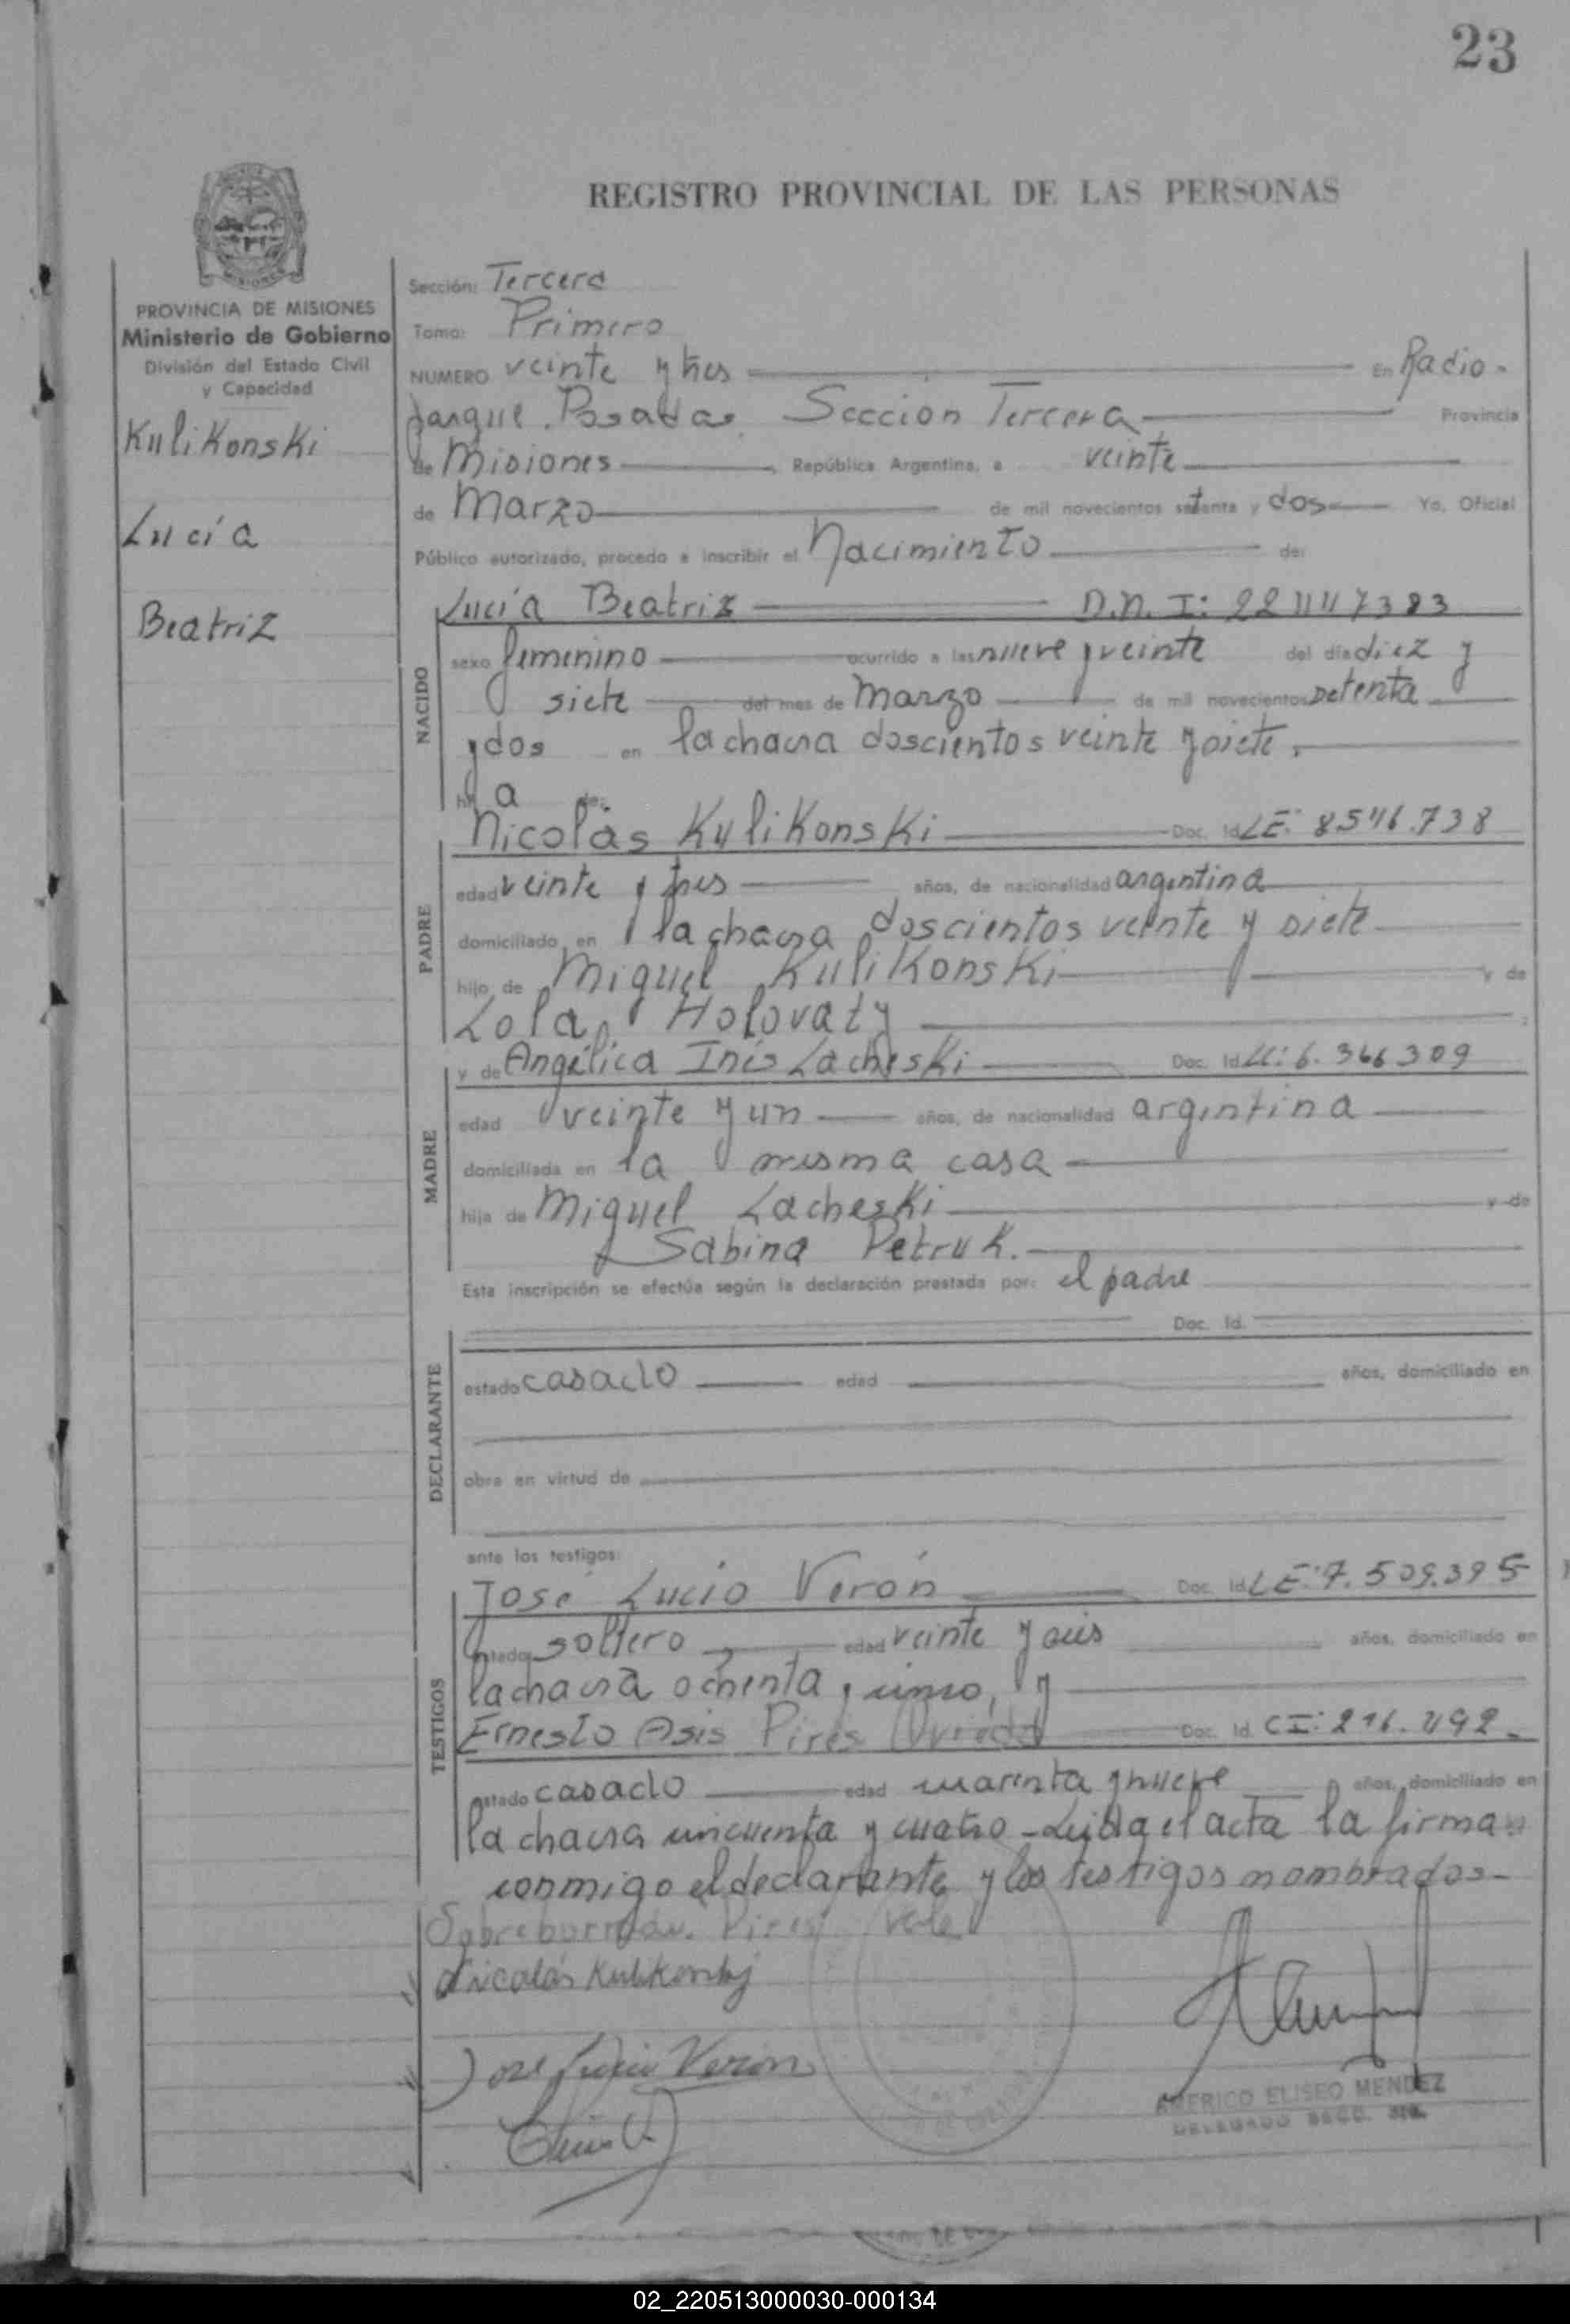 23
REGISTRO PROVINCIAL DE LAS PERSONAS
MISIONES
PROVINCIA DE MISIONES
Ministerio de Gobierno
División del Estado Civil
y Capacidad
Kulikonski
Lucía
Beatriz
Sección: Tercera
Tomo: Primero
NUMERO veinte y tres En Radio
parque Posadas Sección Tercera Provincia
de Misiones, República Argentina, a veinte
de Marzo de mil novecientos setenta y dos Yo, Oficial
Público autorizado, procedo a inscribir el Nacimiento de:
NACIDO
Lucía Beatriz D.N.I:
sexo femenino ocurrido a las nueve y veinte del día diez y
siete del mes de Marzo de mil novecientos setenta
y dos en la chacra doscientos veinte y siete.
hij a de:
PADRE
Nicolás Kulikonski Doc. Id. LE:
edad veinte y tres años, de nacionalidad argentina
domiciliado en la chacra doscientos veinte y siete
hijo de Miguel Kulikonski y de
Lola Holovaty ;
MADRE
y de Angélica Inés Lacheski Doc. Id. LC: 6.366309
edad veinte y un años, de nacionalidad argentina
domiciliada en la misma casa
hija de Miguel Lacheski y de
Sabina Petruk.
Esta inscripción se efectúa según la declaración prestada por: el padre
Doc. Id.
DECLARANTE
estado casado edad años, domiciliado en
obra en virtud de
ante los testigos:
TESTIGOS
José Lucio Verón Doc. Id. LE: 7.509.395
estado soltero edad veinte y seis años, domiciliado en
la chacra ochenta y
Ernesto Asis Pires Doc. Id. CI:
estado casado edad cuarenta y nueve años, domiciliado en
la chacra cincuenta y cuatro - Leída el acta la firman
conmigo el declarante y los testigos nombrados-
Sobreborrado: Pires Vale
Nicolás Kulikonski
Jose Lucio Veron
AMERICO ELISEO MENDEZ
DELEGADO SECC. 3ra.
02_220513000030-000134